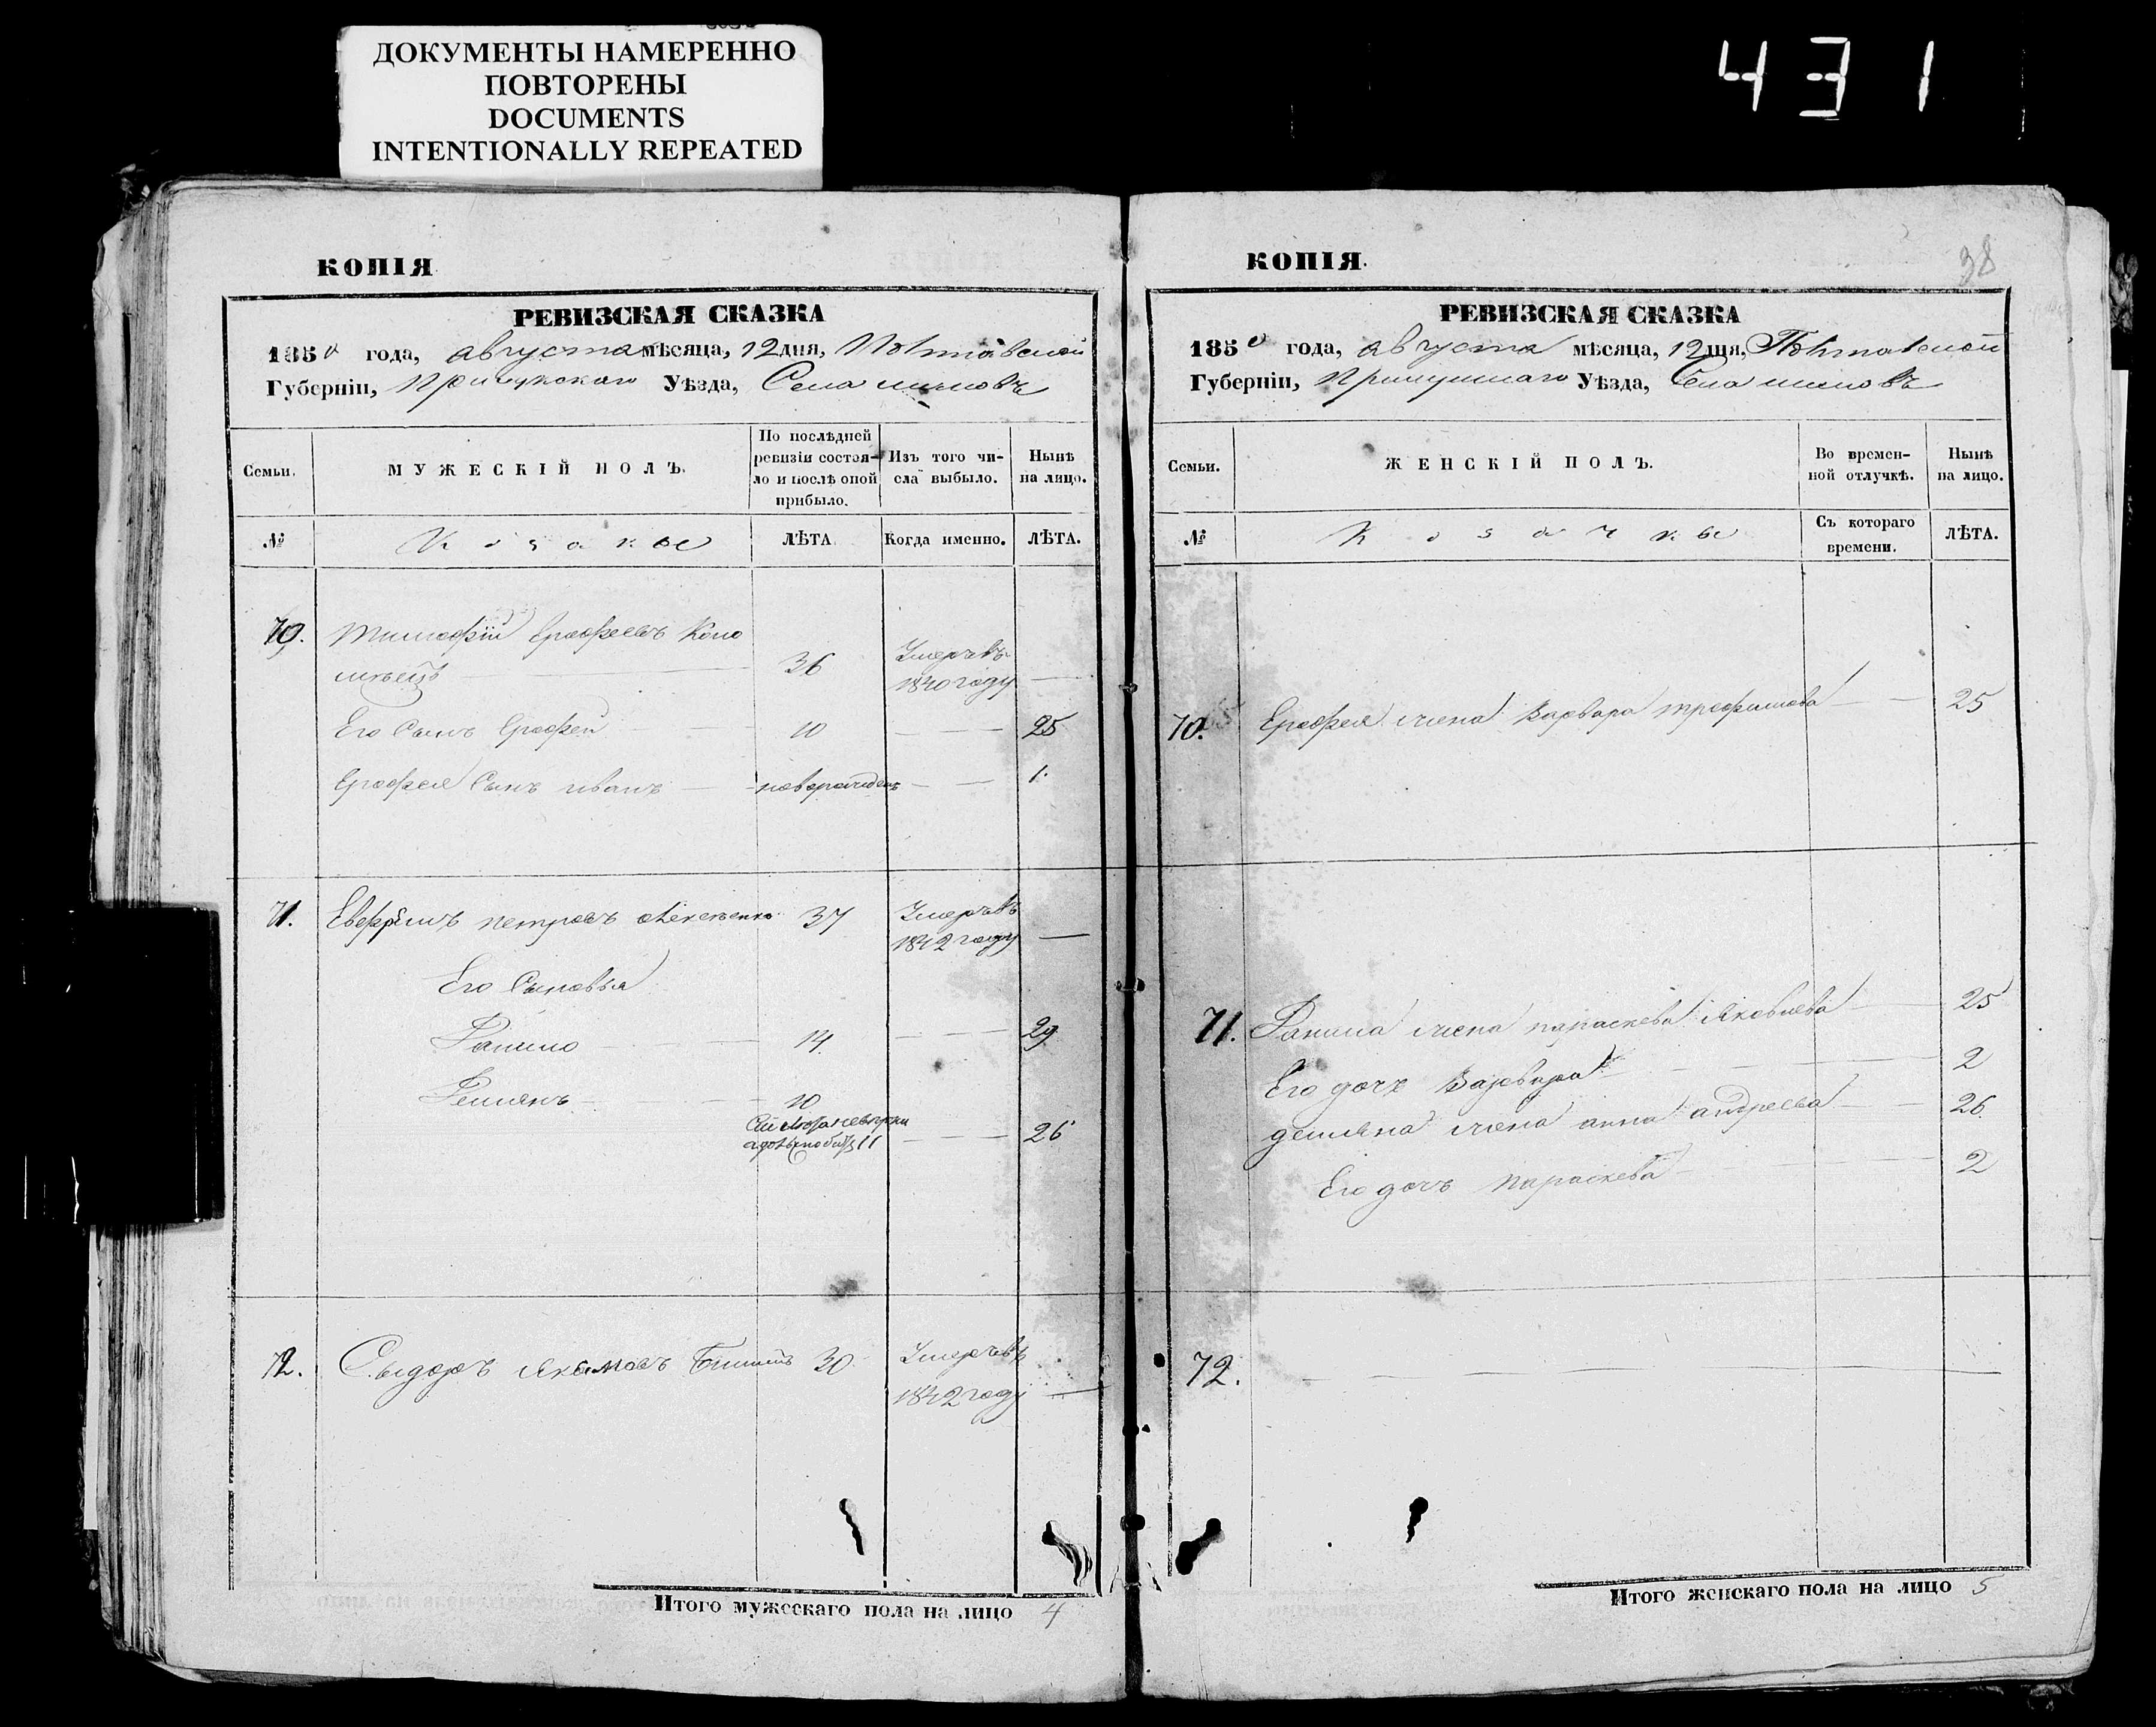 ДОКУМЕНТЫ НАМЕРЕННО
ПОВТОРЕНЫ
DOCUMENTS
INTENTIONALLY REPEATED
431
КОПІЯ.
РЕВИЗСКАЯ СКАЗКА
1850 года, августа мѣсяца, 12 дня, Полтавской
Губерніи, Прилукскаго Уѣзда, Села
Семьи.
МУЖЕСКІЙ ПОЛЪ.
По послѣдней
ревизіи состоя-
ло и послѣ оной
прибыло.
Изъ того чи-
сла выбыло.
Нынѣ
на лицо.
№
Козаки
ЛѢТА
Когда именно.
ЛѢТА.
70. Ерофеевъ Коло
36 Умеръ въ
1840 году
Его Сынъ Ерофей 10 25
Ерофея Сынъ иванъ новорожденъ 1.
71. петровъ 37 Умеръ въ
1842 году
Его Сыновья
Данило 14. 29
Демянъ 10
11 26
72. Сыдоръ Якимовъ 30 Умеръ въ
1842 году
Итого мужескаго пола на лицо 4
КОПІЯ.
38
РЕВИЗСКАЯ СКАЗКА
1850 года, августа мѣсяца, 12 дня, Полтавской
Губерніи, Прилуцкаго Уѣзда, Села
Семьи.
ЖЕНСКІЙ ПОЛЪ.
Во времен-
ной отлучкѣ.
Нынѣ
на лицо.
№
Козачки
Съ котораго
времени.
ЛѢТА.
70. Ерофея жена Варвара трофимова 25
71. Данила жена параскева Яковлева 25
Его дочь Варвара 2
демяна жена анна андреева 26
Его дочь параскева 2
72.
Итого женскаго пола на лицо 5